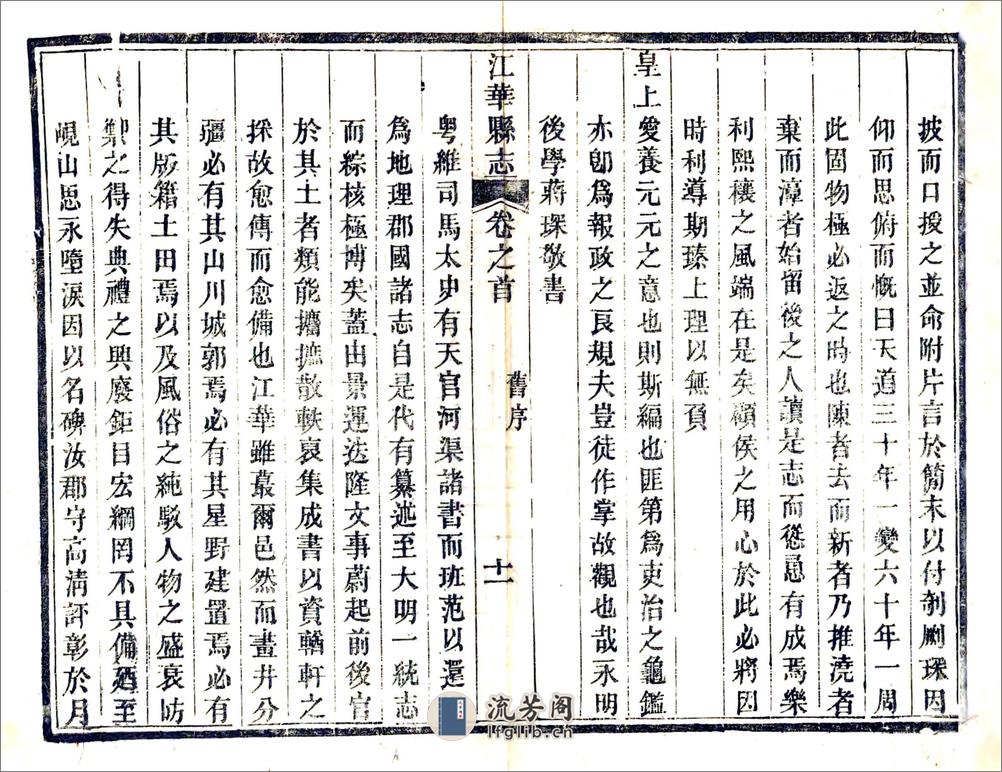 披而口授之並命附片言於簡末以付剞劂琛因
仰而思俯而慨曰天道三十年一變六十年一周
此固物極必返之時也陳者去而新者乃推澆者
棄而漓者始留後之人讀是志而慫恿有成焉樂
利熙穰之風端在是矣顧侯之用心於此必將因
時利導期臻上理以無負
皇上愛養元元之意也則斯編也匪第為吏治之龜鑑
亦卽為報政之良規夫豈徒作掌故觀也哉永明
後學蔣琛敬書
江華縣志 卷之首 舊序 十一
粵維司馬太史有天官河渠諸書而班范以還
為地理郡國諸志自是代有纂述至大明一統志
而綜核極博矣蓋由景運迭隆文事蔚起前後官
於其土者類能攟摭散軼裒集成書以資輶軒之
採故愈傳而愈備也江華雖蕞爾邑然而畫井分
疆必有其山川城郭焉必有其星野建置焉必有
其版籍土田焉以及風俗之純駁人物之盛衰防
禦之得失典禮之興廢鉅目宏綱罔不具備廼至
峴山思永墮淚因以名碑汝郡守高清評彰於月
流芳阁
lfglib.cn